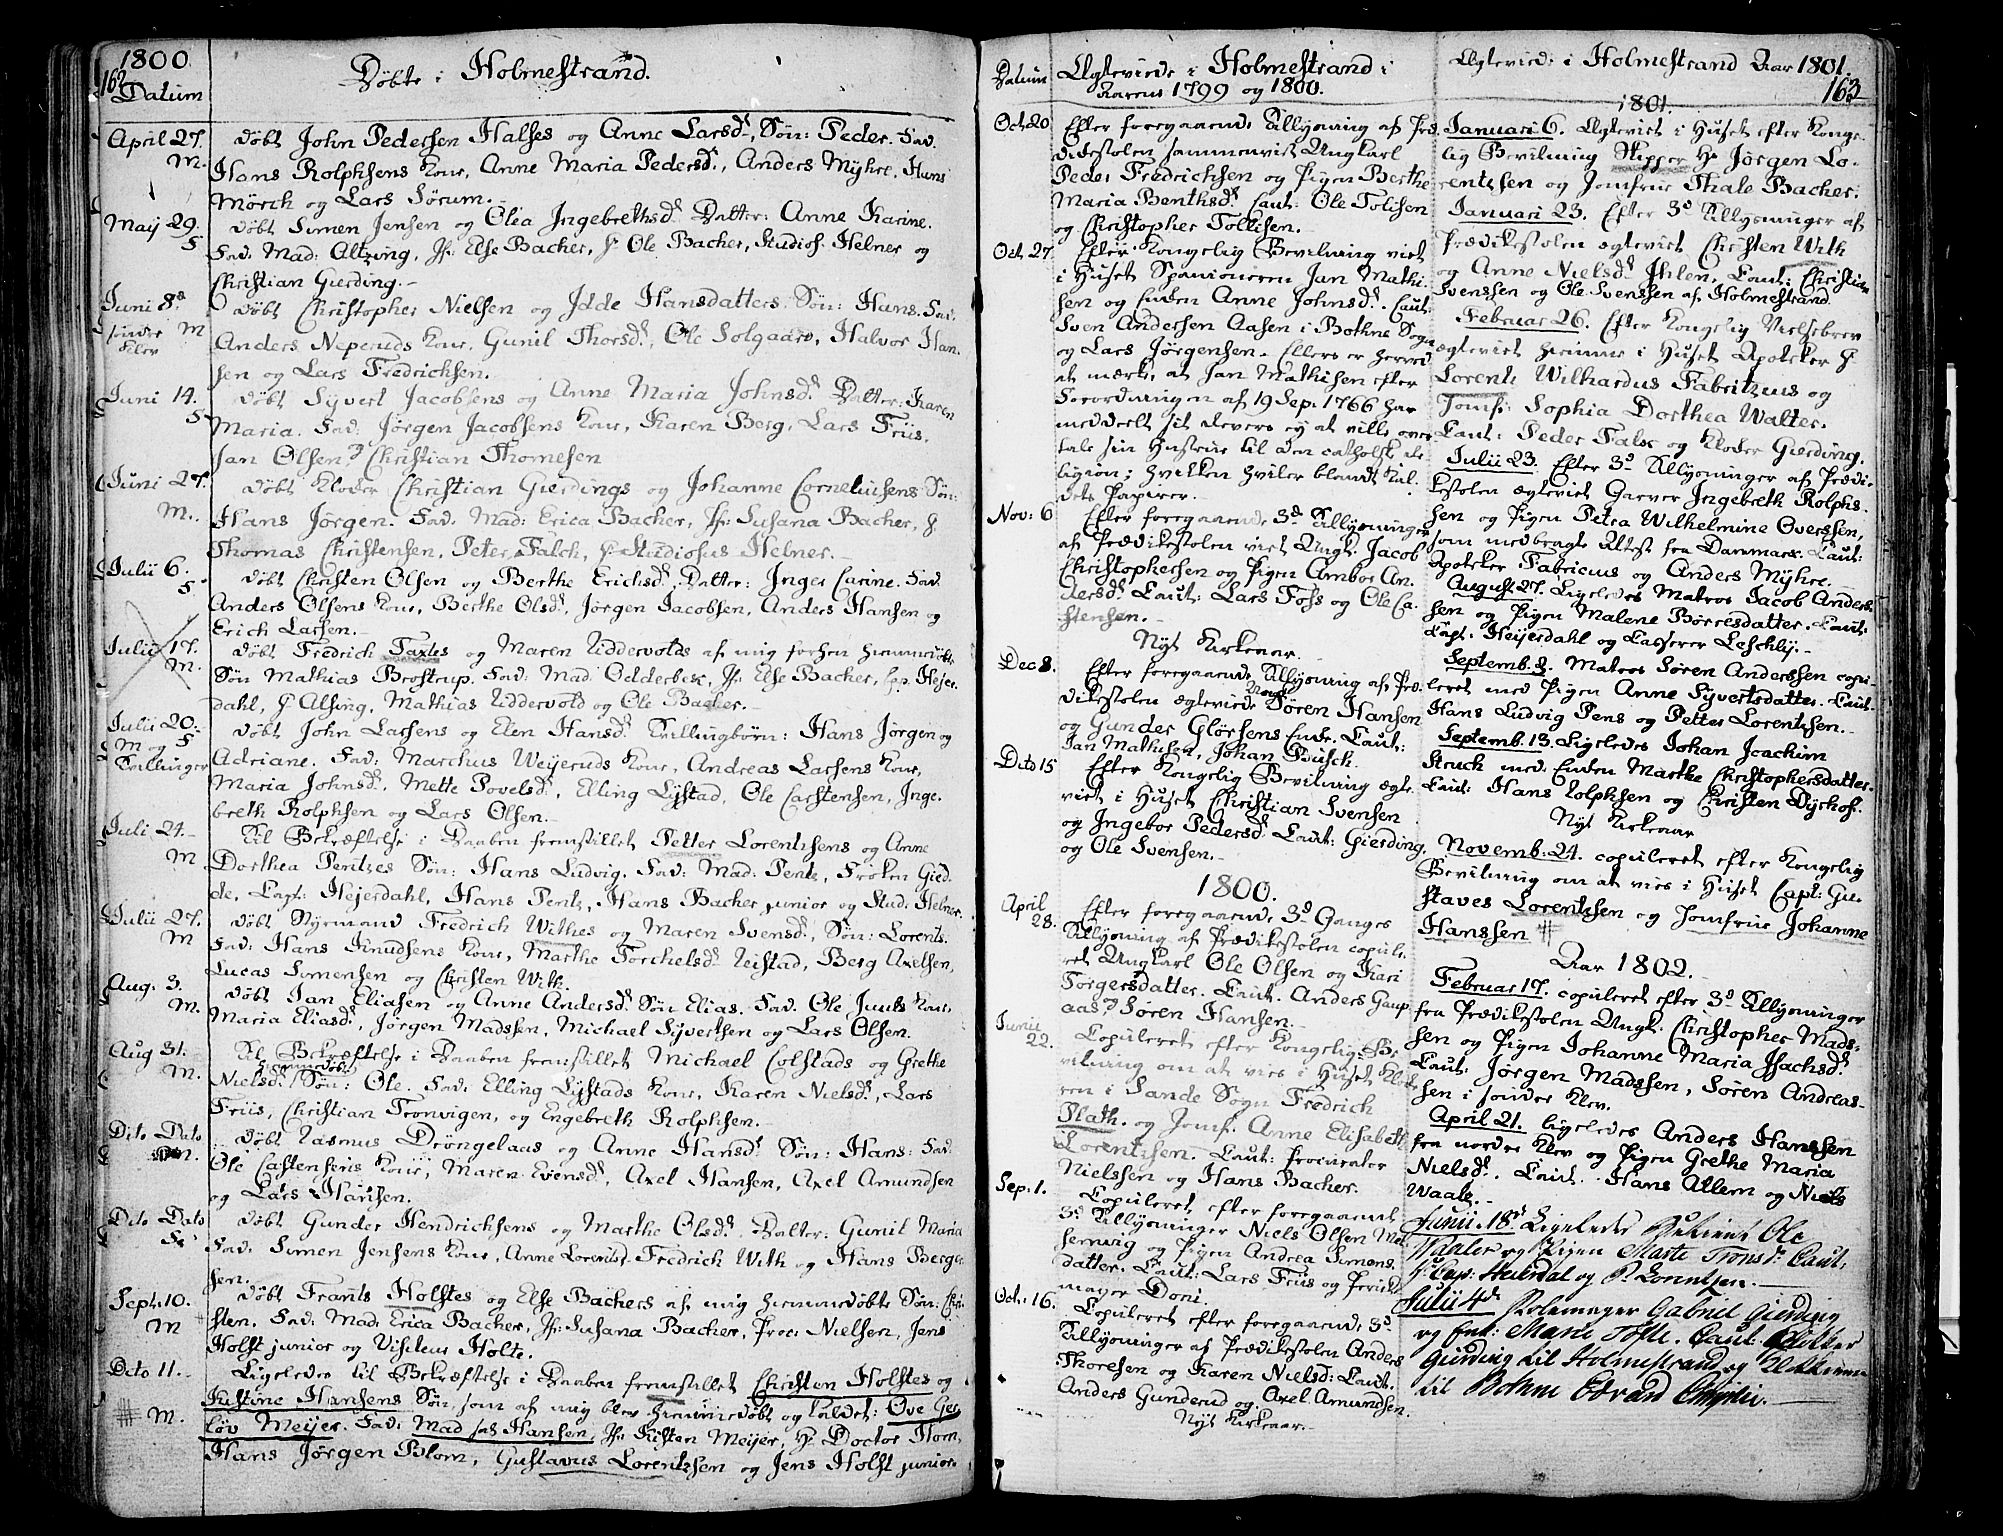 1800
162
Datum
Døbte i Holmestrand.
April 27. M.
døbt John Pedersen Halses og Anne Larsd., Søn: Peder. Fad.
Hans Rolphsens Kone, Anne Maria Pedersd., Anders Myhre, Hans
Mørch og Lars Sørum.
May 29.
døbt Simen Jensen og Olea Ingebrethsd. Datter: Anne Karine.
Fad. Mad: Altzing, Jf: Else Bacher, Hr Ole Bacher, Studios. Helner og
Christian Gierding.
Juni 8d M
døbt Christopher Nielsen og Idde Hansdatters Søn: Hans. Fad.
Anders Neperuds Kone, Gunil Thorsd., Ole Solgaard, Halvor Han-
sen og Lars Fredrichsen.
Juni 14.
døbt Syvert Jacobsens og Anne Maria Johnsd. Datter: Karen
Maria. Fad: Jørgen Jacobsens Kone, Karen Berg, Lars Friis,
Jan Olsen, Christian Thomesen
Juni 27. M.
døbt Kloder Christian Gierdings og Johanne Corneliusens Søn:
Hans Jørgen. Fad. Mad: Erica Bacher, Jf: Susana Bacher, Hr
Thomas Christensen, Peter Falch, Hr Studiosus Helner.
Julii 6.
døbt Christen Olsen og Berthe Erichsd., Datter: Inger Carine. Fad.
Anders Olsens Kone, Berthe Olsd., Jørgen Jacobsen, Anders Hansen og
Erich Larsen.
Julii 17. M.
døbt Fredrich Taxtes og Maren Uddervolds af mig forhen hiemmedøbte
Søn Mathias Brostrup. Fad. Mad. Odderbek, Jf: Else Bacher, Cap. Hejer-
dahl, Hr Alsing, Mathias Uddervold og Ole Bacher.
Julii 20. M og
Tvillinger
døbt John Larsens og Elen Hansd. Tvillingbørn: Hans Jørgen og
Adriane. Fad: Marchus Weyeruds Kone, Andreas Larsens Kone,
Maria Johnsd., Mette Povelsd., Elling Lystad, Ole Carstensen, Inge-
breth Rolphsen og Lars Olsen.
Juli 24. M
Til Bekræftelse i Daaben fremstillet Petter Lorentzsens og Anne
Dorthea Pentzes Søn: Hans Ludvig. Fad: Mad: Pentz, Frøken Gied-
de, Capt: Hejerdahl, Hans Pentz, Hans Bacher junior og Stud: Helner.
Julii 27. M
døbt Styrmand Fredrich Withes og Maren Svensd., Søn: Lorents.
Fad: Hans Knudsens Kone, Marthe Torchelsd. Leistad, Berg Axelsen,
Lucas Simensen og Christen With.
Aug: 3. M.
døbt Jan Eliasen og Anne Andersd. Søn Elias. Fad. Ole Juuls Kone,
Maria Eliasd., Jørgen Madssen, Michael Syvertsen og Lars Olsen.
Aug 31. M.
Til Bekræftelse i Daaben fremstillet Michael Colstads og Grethe
Nielsd. hiemmedøbt Søn: Ole. Fad: Elling Lystads Kone, Karen Nielsd., Lars
Friis, Christian Tronvigen, og Engebreth Rolphsen.
Dito Dato M.
døbt Rasmus Drøngelaas og Anne Hansd. Søn: Hans: Fad.
Ole Castensens Kone, Maren Evensd., Axel Hansen, Axel Amundsen
og Lars Hansen.
Dito Dato
døbt Gunder Hendrichsens og Marthe Olsd. Datter: Gunil Maria
Fad. Simen Jensens Kone, Anne Lorentsd. Fredrich With og Hans Berger-
sen.
Sept: 10. M
døbt Frants Holstes og Else Bachers af mig hiemmedøbte Søn: Chri-
sten. Fad: Mad: Erica Bacher, Jf: Susana Bacher, Proc: Nielsen, Jens
Holst junior og Visiteur Holte.
Dito 11. M.
Ligeledes til Bekræftelse i Daaben fremstillet Christen Holstes og
Kistine Hansens Søn, som af mig blev hiemmedøbt og kaldet: Ove Ger-
løv Meijer. Fad: Mad sal Hansen, Jfr: Kisten Meijer, Hr Doctor Horn,
Hans Jørgen Blom, Gustavus Lorentzsen og Jens Holst junior.
Datum
Ægteviede i Holmestrand i
Aarene 1799 og 1800.
Oct 20
Efter foregaaende Tillysning af Præ-
dikestolen sammenviet Ungkarl
Peder Fredrichsen og Pigen Berthe
Maria Benthsd. Caut: Ole Tolisen
og Christopher Tollisen.
Oct. 27
Efter Kongelig Bevilning viet
i Huset Spanioneren Jan Mathi-
sen og Enken Anne Johnsd. Caut:
Sven Andersen Aasen i Bothne Sogn
og Lars Jørgensen. Ellers er herved
at mærke, at Jan Mathisen efter
Forordningen af 19 Sep. 1766 har
meddeelt sit Revers ej at ville over-
tale sin Hustrue til den catholske re-
ligion; hvilken hviler blandt Kal-
dets Papirer.
Nov: 6
Efter foregaaende 3de Tillysninger
af Prædikestolen viet Ungk. Jacob
Christophersen og Pigen Ambor An-
dersd. Caut: Lars Foss og Ole Ca-
stensen.
Nyt Kirkeaar.
Dec 8.
Efter foregaaende Tillysning af Præ-
dikestolen ægteviede Søren Hansen
og Gunder Glørsens Enke. Caut:
Jan Mathisen, Johan Busch.
Dito 15
Efter Kongelig Bevilning ægte-
viet i Huset Christian Svensen
og Ingebor Pedersd. Caut: Gierding,
og Ole Svensen.
1800.
April 28.
Efter foregaaende 3de Ganges
Tillysning af Prædikestolen copule-
ret Ungkarl Ole Olsen og Kari
Torgersdatter. Caut. Anders Gaup-
aas og Søren Hansen.
Junii 22.
Copuleret efter Kongelig Be-
vilning om at vies i Huset Klok-
ren i Sande Sogn Fredrich
Plath. og Jomf. Anne Elisabeth
Lorentzsen. Caut: Procurator
Nielssen og Hans Bacher.
Sep: 1.
Copuleret efter foregaaende
3de Tillysninger Niels Olsen
og Pigen Andrea Simons-
datter. Caut: Lars Friis og Peruk-
mager Doni.
Oct: 16.
Copuleret efter foregaaende 3de
Tillysninger af Prædikestolen Anders
Thoresen og Karen Nielsd: Caut.
Anders Gunderud og Axel Amundsen.
Nyt Kirkeaar.
Ægteviede i Holmestrand Aar 1801.
163
1801.
Januari 6. Ægteviet i Huset efter Konge-
lig Bevilning Skipper Hr Jørgen Lo-
rentzsen og Jomfrue Thale Bacher.
Januari 23. Efter 3de Tillysninger af
Prædikestolen ægteviet Christen With
og Anne Nielsd. Ihlen. Caut: Christian
Svenssen og Ole Svenssen af Holmestrand.
Februar 26. Efter Kongelig Vielsebrev
ægteviet hiemme i Huset Apoteker Hr
Lorents Wilhardus Fabritzius og
Jomf: Sophia Dorthea Walter.
Caut: Peder Falck og Kloder Gierding.
Julii 23. Efter 3de Tillysninger af Prædi-
kestolen ægteviet Garver Ingebreth Rolphs-
sen og Pigen Petra Wilhelmine Overssen,
som medbragte Attest fra Dammark. Caut:
Apoteker Fabricius og Anders Myhre.
August 27. Ligeledes Matros Jacob Anders-
sen og Pigen Malene Børresdatter. Caut:
Capt: Heijerdahl og Casserer Leschly.
Septemb. 3. Matros Søren Anderssen copu-
leret med Pigen Anne Syvertsdatter. Caut.
Hans Ludvig Pens og Petter Lorentzsen.
Septemb. 13. Ligeledes Johan Joachim
Struck med Enken Marthe Christophersdatter.
Caut: Hans Rolphsen og Christen Dyrhof.
Nyt Kirkeaar
Novemb: 24. copuleret efter Kongelig
Bevilning om at vies i Huset Capt: Gu-
staves Lorentzsen og Jomfrue Johanne
Hanssen
Aar 1802.
Februar 17. copuleret efter 3de Tillysninger
fra Prædikestolen Ungk. Christopher Mads-
sen og Pigen Johanne Maria Isachsd.
Caut: Jørgen Madssen, Søren Andreas-
sen i søndre Klev.
April 21. ligeledes Anders Hanssen
fra nordre Klev og Pigen Grethe Maria
Nielsd. Caut. Hans Ullern og Niels
Waale.
Junii 18de Ligeledes Ole
og Pigen Marte Tronsd. Caut.
Hr Cap: Heierdal og P. Lorentzen.
Julii 4de Gabriel Gierding
og Enk: Marie Tofte. Caut:
Gierding til Holmestrand og
til Bothne